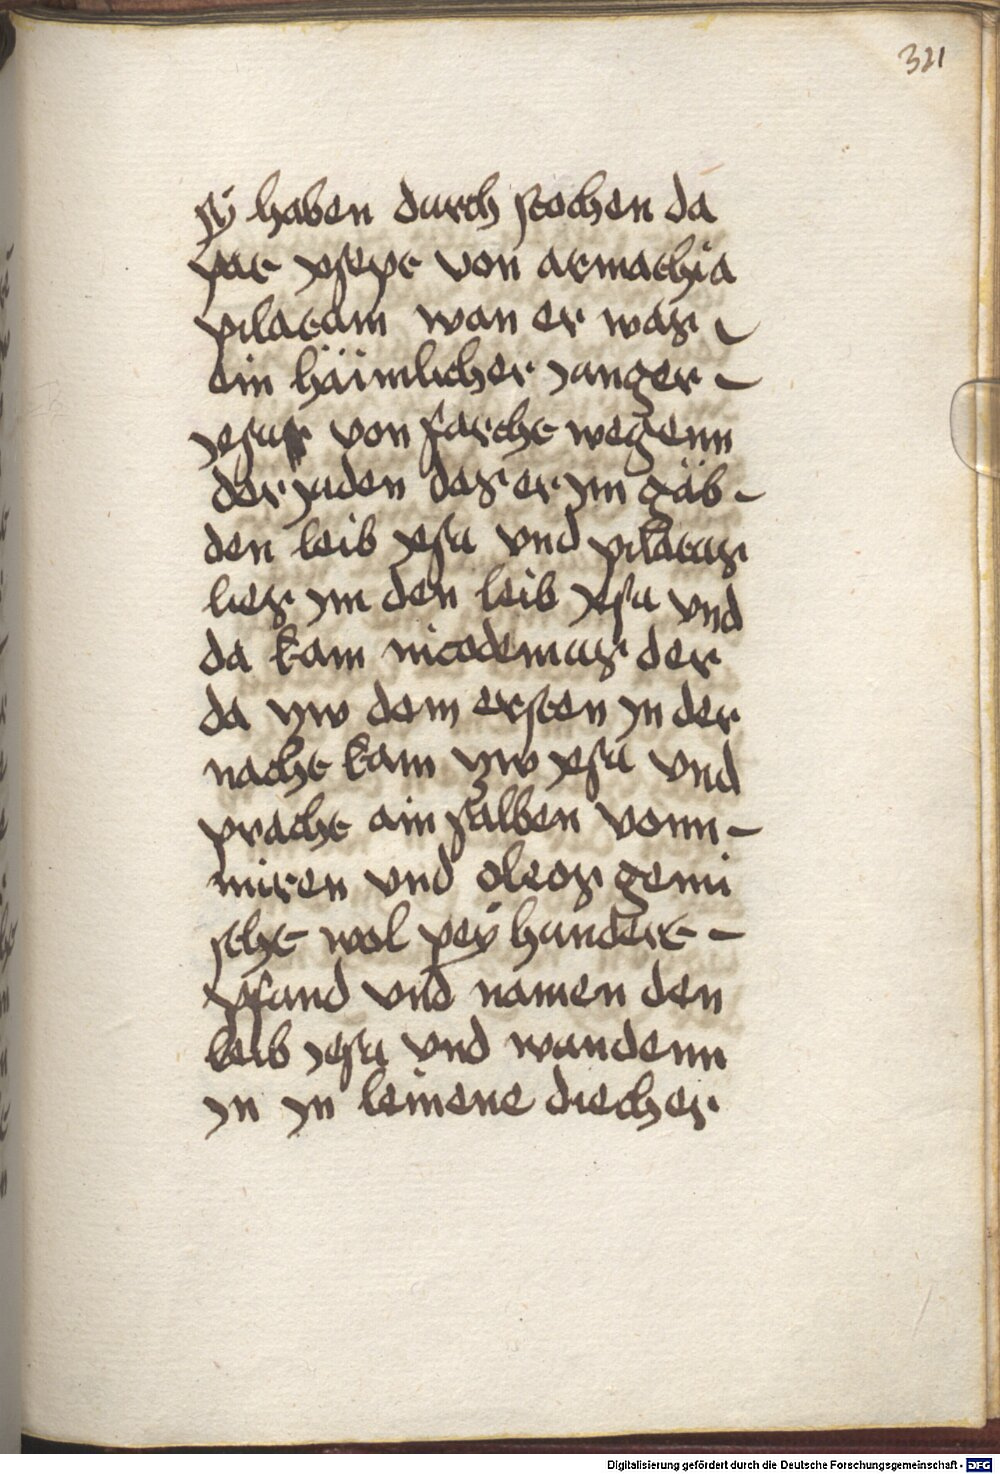 321
sÿ haben durch stochen da
pat yosepe von armathia
pilatum wan er waß
ein häimlicher junger
yesus von furcht wegenn
der juden daß er ym gäb
den leib yesu vnd pilatus
ließ ym den leib yesu vnd
da kam nicodemus der
da zuo dem ersten yn der
nacht kam zuo yesu vnd
pracht ain salben vonn
mirren vnd oleos gemi
scht wol peÿ hundert
pfund vnd namen den
leib yesu vnd wundenn
yn yn leinene diecher
Digitalisierung gefördert durch die Deutsche Forschungsgemeinschaft - DFG